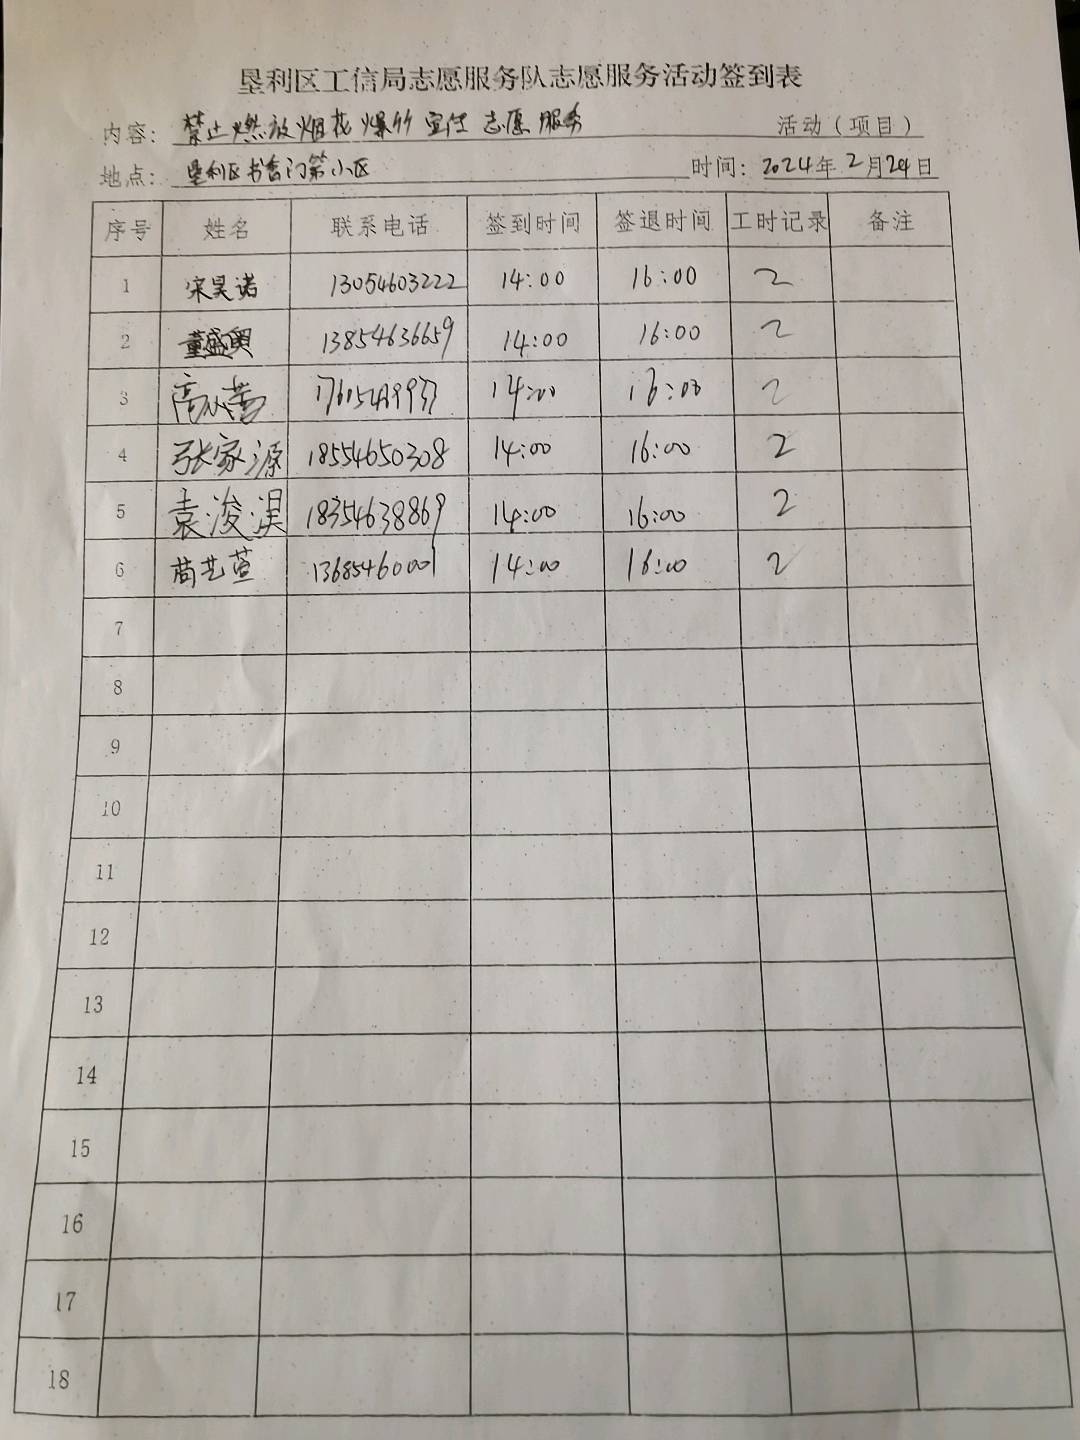 垦利区工信局志愿服务队志愿服务活动签到表
内容：禁止燃放烟花爆竹宣传志愿服务 活动（项目）
地点：垦利区书香门第小区 时间：2024年2月24日
序号 姓名 联系电话 签到时间 签退时间 工时记录 备注
1 宋昊诺 13054603222 14:00 16:00 2
2 董盛奥 13854636659 14:00 16:00 2
3 14:00 16:00 2
4 张家源 18554650308 14:00 16:00 2
5 袁浚淏 18354638869 14:00 16:00 2
6 苘艺萱 13685460001 14:00 16:00 2
7
8
9
10
11
12
13
14
15
16
17
18